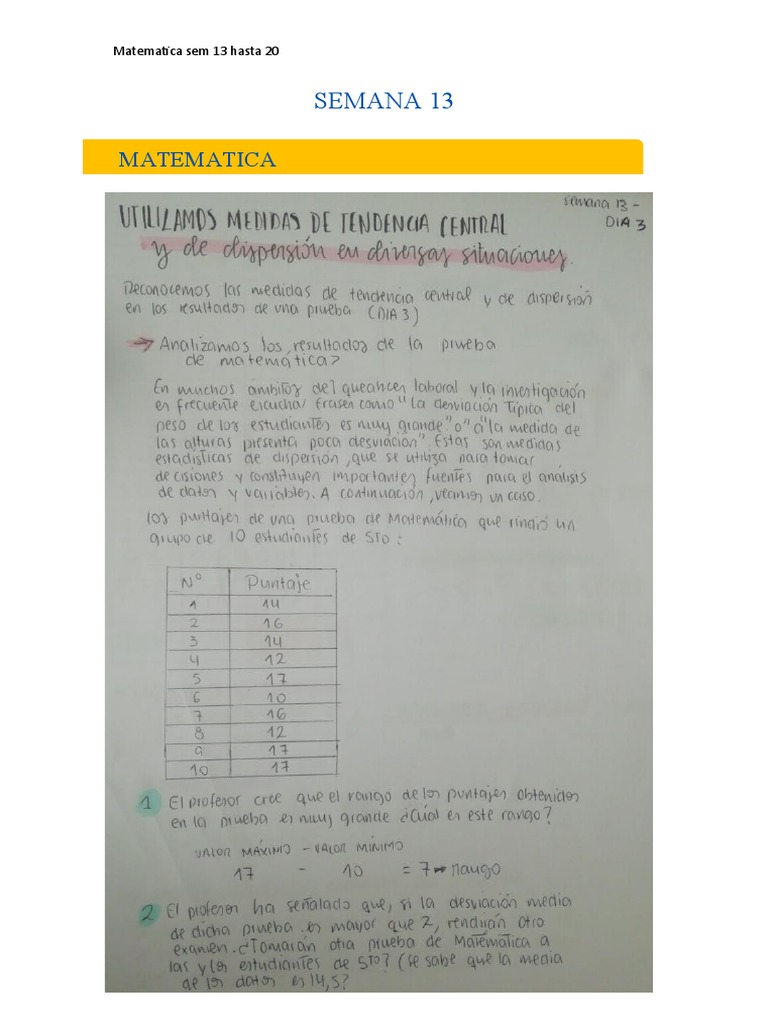 Matematica sem 13 hasta 20
SEMANA 13
MATEMATICA
semana 13 -
DIA 3
UTILIZAMOS MEDIDAS DE TENDENCIA CENTRAL
y de dispersión en diversas situaciones.
Reconocemos las medidas de tendencia central y de dispersión
en los resultados de una prueba (DIA 3)
→ Analizamos los resultados de la prueba
de matemática?
En muchos ámbitos del quehacer laboral y la investigación
es frecuente escuchar frases como "la desviación típica del
peso de los estudiantes es muy grande" o "a la medida de
las alturas presenta poca desviación". Estas son medidas
estadísticas de dispersión, que se utiliza para tomar
decisiones y constituyen importantes fuentes para el análisis
de datos y variables. A continuación, veamos un caso.
los puntajes de una prueba de Matemática que rindió un
grupo de 10 estudiantes de 5to:
N° Puntaje
1 14
2 16
3 14
4 12
5 17
6 10
7 16
8 12
9 17
10 17
1 El profesor cree que el rango de los puntajes obtenidos
en la prueba es muy grande ¿Cuál es este rango?
VALOR MÁXIMO - VALOR MÍNIMO
17 - 10 = 7 → rango
2 El profesor ha señalado que, si la desviación media
de dicha prueba es mayor que 2, rendirán otro
examen. ¿Tomarán otra prueba de Matemática a
las y los estudiantes de 5to? (se sabe que la media
de los datos es 14,5?